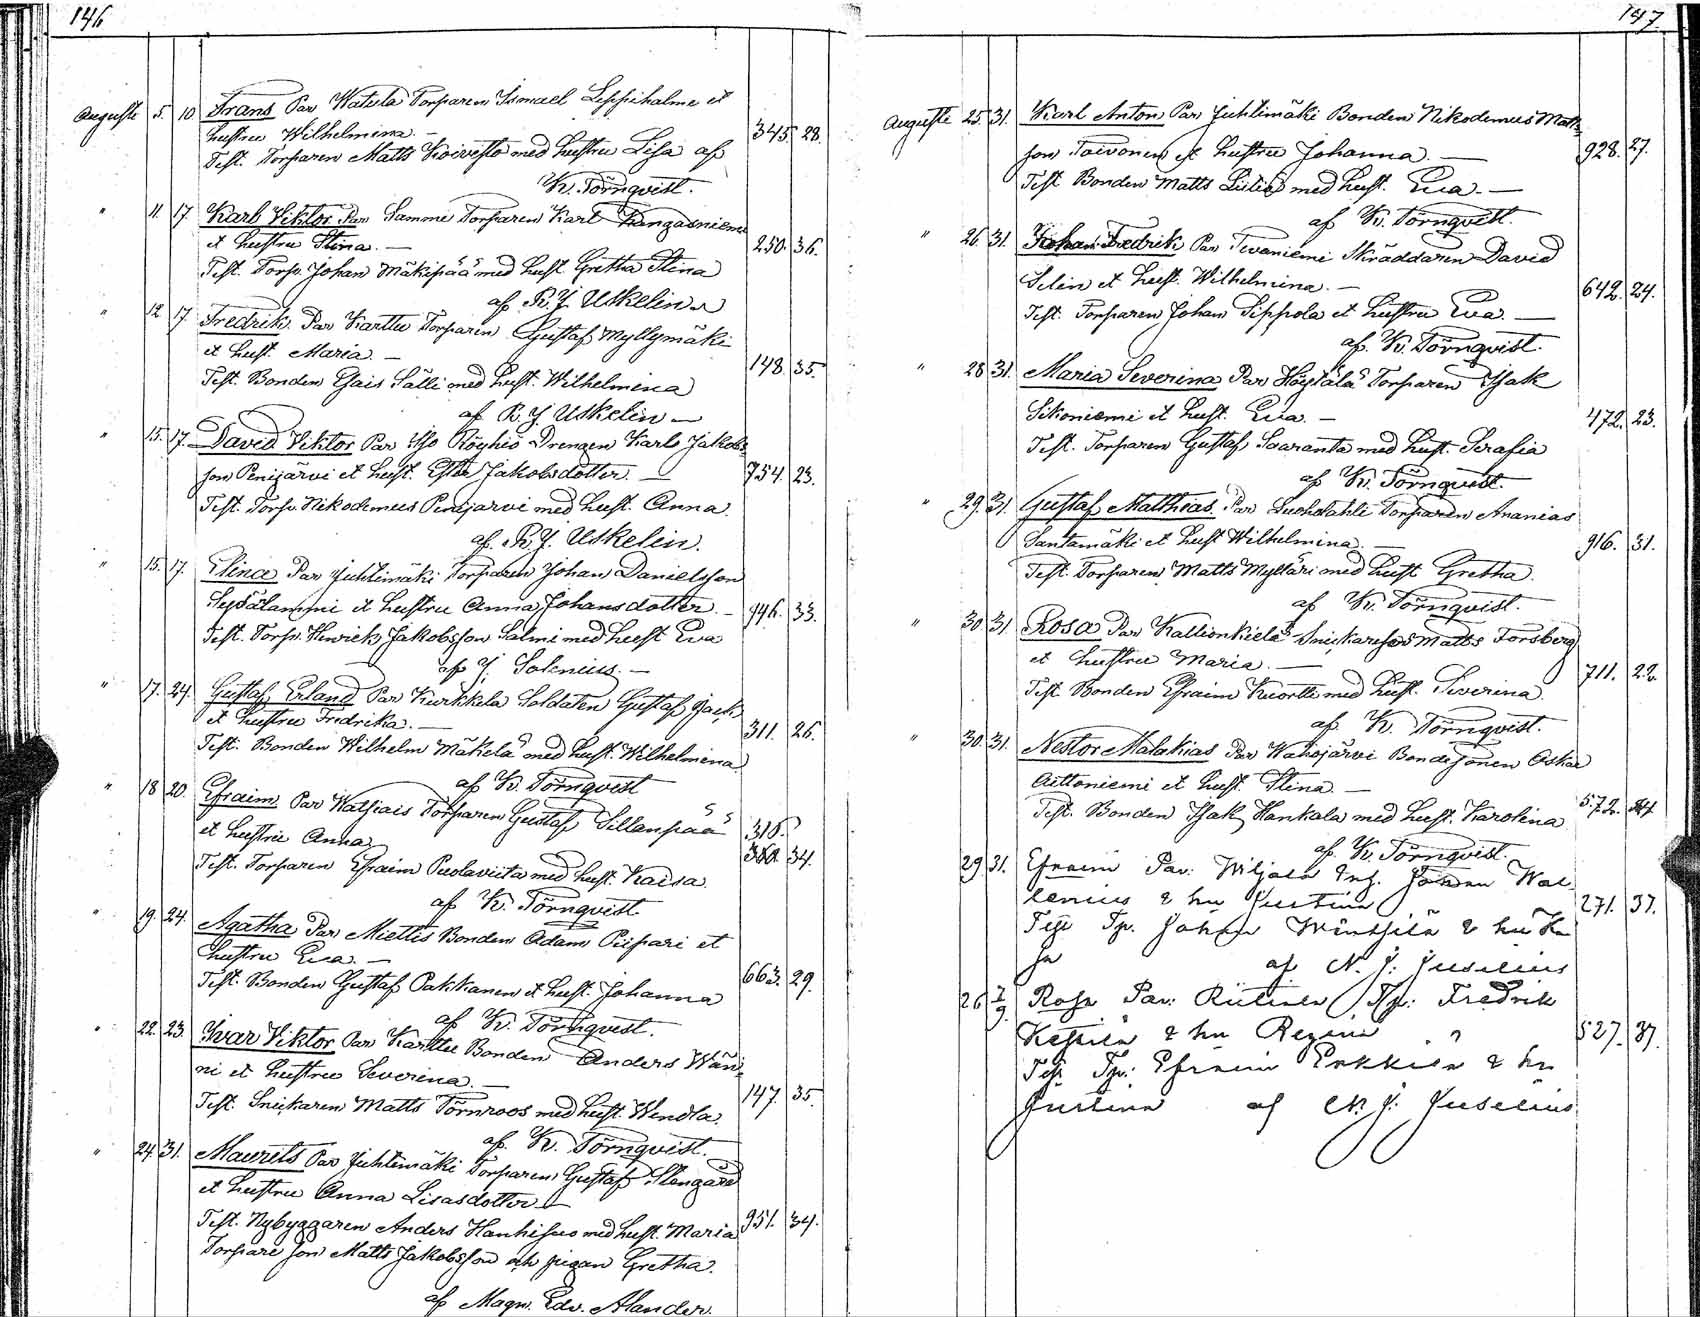 146
Auguste 5. 10. Frans Par Katula Torparen Ismael Leppihalme et
hustru Wilhelmina. — 345. 28.
Test. Torparen Matts Koivisto med hustru Lisa af
K. Törnqvist.
" 11. 17. Karl Viktor Par Sammi Torparen Karl Kangasniemi
et hustru Stina. — 250. 36.
Test. Torp. Johan Mäkipää med hust. Gretha Stina
af R. J. Uskelin
" 12. 17. Fredrik. Par Karttu Torparen Gustaf Myllymäki
et hust. Maria. — 148. 35.
Test. Bonden Esais Sälli med hust. Wilhelmina
af R. J. Uskelin —
" 15. 17. David Viktor Par Iso Röyhiö Drengen Karl Jakobs-
son Penijärvi et hust. Ester Jakobsdotter. — 754. 23.
Test. Torp. Nikodemus Penijärvi med hust. Anna
af. R. J. Uskelin.
" 15. 17. Elina Par Juhtimäki Torparen Johan Danielsson
et hustru Anna Johansdotter. — 946. 33.
Test. Torp. Henrick Jakobsson Salmi med hust Eva
af J. Solenius. —
" 17. 24. Gustaf Erland Par Kurkkela Soldaten Gustaf Jack
et hustru Fredrika. — 311. 26.
Test. Bonden Wilhelm Mäkelä med hust. Wilhelmina
af K. Törnqvist
" 18 20. Efraim Par Torparen Gustaf Sillanpää
et hustru Anna 316. 34.
Test. Torparen Efraim Puolaviita med hust. Kaisa.
af K. Törnqvist
" 19. 24. Agatha Par Miettis Bonden Adam Piipari et
hustru Eva. — 663. 29.
Test. Bonden Gustaf Pakkanen et hust. Johanna
af K. Törnqvist.
" 22. 23. Ivar Viktor Par Karttu Bonden Anders Wän-
ni et hustru Severina. — 147. 35.
Test. Snickaren Matts Törnroos med hust. Wendla.
af. K. Törnqvist.
" 24. 31. Maurits Par Juhtimäki Torparen Gustaf Stengård
et hustru Anna Lisasdotter — 951. 34.
Test. Nybyggaren Anders Hanhisuo med hust. Maria
Torpare son Matts Jakobsson och pigan Gretha.
af Magn. Edv. Alander.
147.
Auguste 25. 31. Karl Anton Par Juhtimäki Bonden Nikodemus Matts-
son Toivonen et hustru Johanna. — 928. 27.
Test Bonden Matts med hust. Eva. —
af K. Törnqvist.
" 26. 31. Johan Fredrik Par Tevaniemi Skräddaren David
Selin et hust. Wilhelmina. — 642. 24.
Test. Torparen Johan Sippola et hustru Eva —
af. K. Törnqvist.
" 28 31. Maria Severina Par Höytälä Torparen Isak
Sikoniemi et hust. Eva. — 472. 23.
Test. Torparen Gustaf Saaranta med hust. Serafia
af K. Törnqvist.
" 29. 31. Gustaf Matthias. Par Luohdahti Torparen Ananias
Santamäki et hust Wilhelmina — 916. 31.
Test. Torparen Matts Mylläri med hust Gretha.
af K. Törnqvist.
" 30. 31. Rosa Par Kallionkielä Snickareson Matts Forsberg
et hustru Maria. — 711. 22.
Test. Bonden Efraim Kuortti med hust. Severina.
af K. Törnqvist.
" 30. 31. Nestor Malakias Par Wahojärvi Bondesonen Oskar
Auttoniemi et hust. Stina. — 572. 24.
Test. Bonden Isak Hankala med hust. Karolina
af K. Törnqvist.
29. 31. Efraim Par. Wiljala Johan Wal-
lenius & hu Justina 271. 37.
Test Tp. Johan Wäntsilä & hu Ka
sa af N. J. Juselius
26 2/9 Rosa Par: Riitiala Tp: Fredrik
& hu Regina " 527. 37.
Test Tp: Efraim Erkkilä & hu
Justina af N. J. Juselius